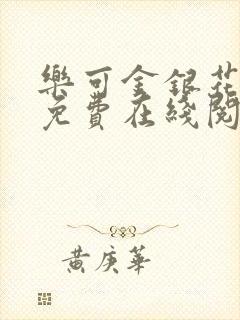 樂可金銀花
免費在綫閱
黃庚華